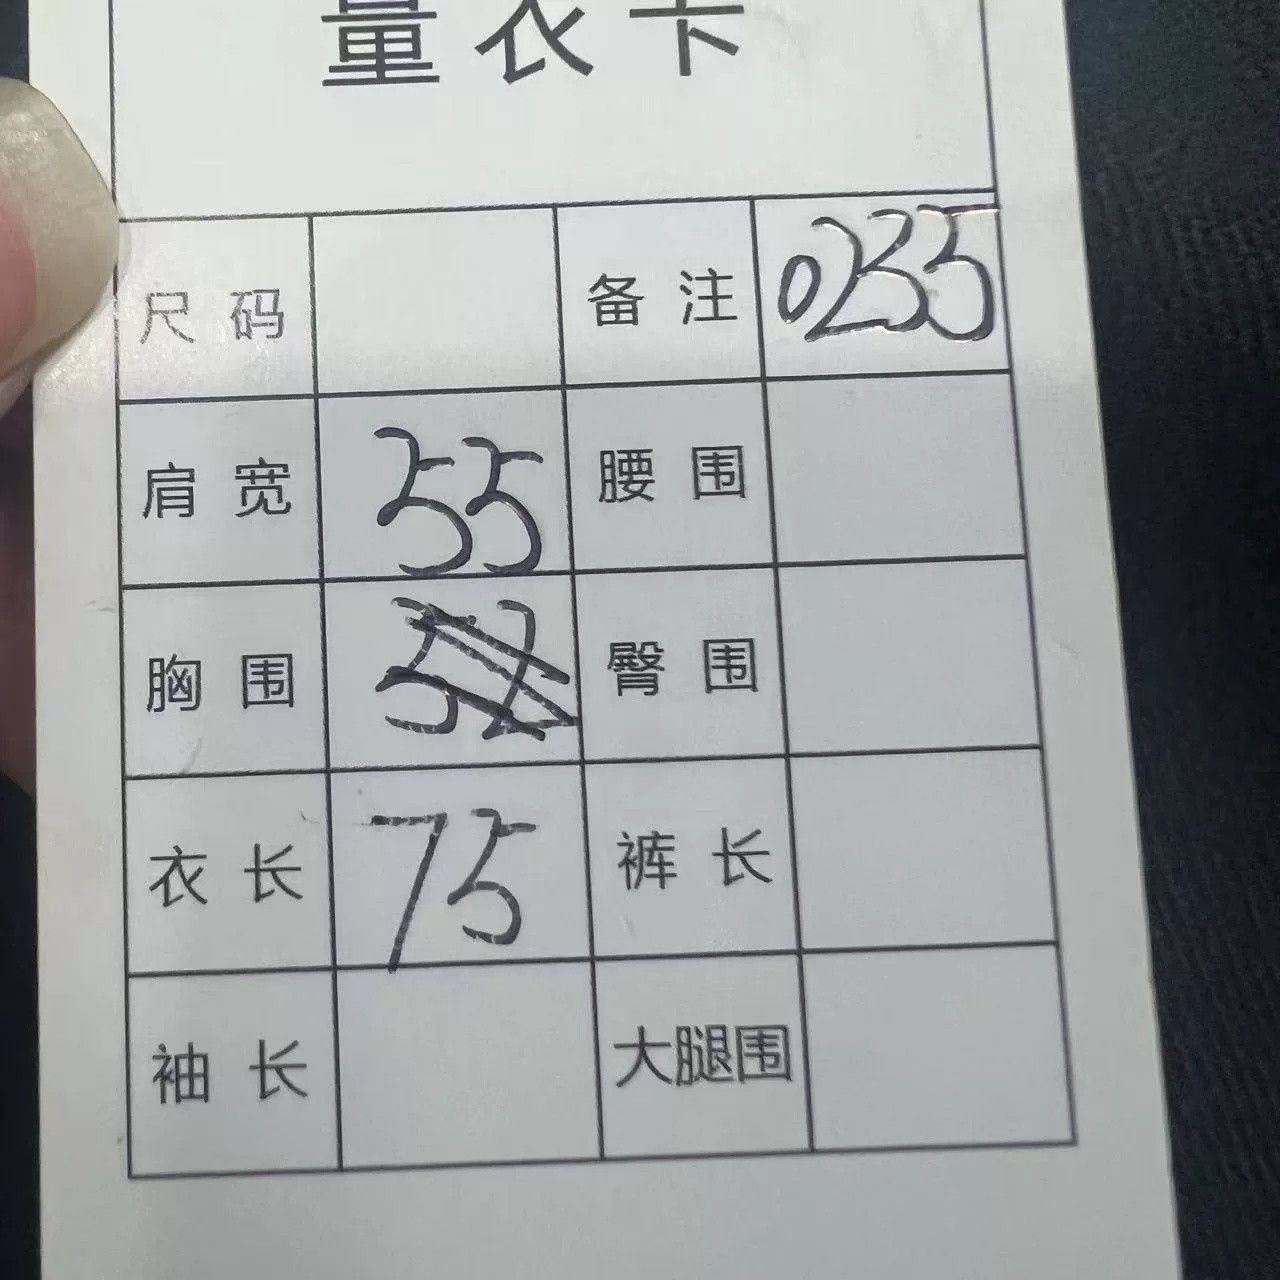 量衣卡
尺码 备注 0255
肩宽 55 腰围
胸围 臀围
衣长 75 裤长
袖长 大腿围